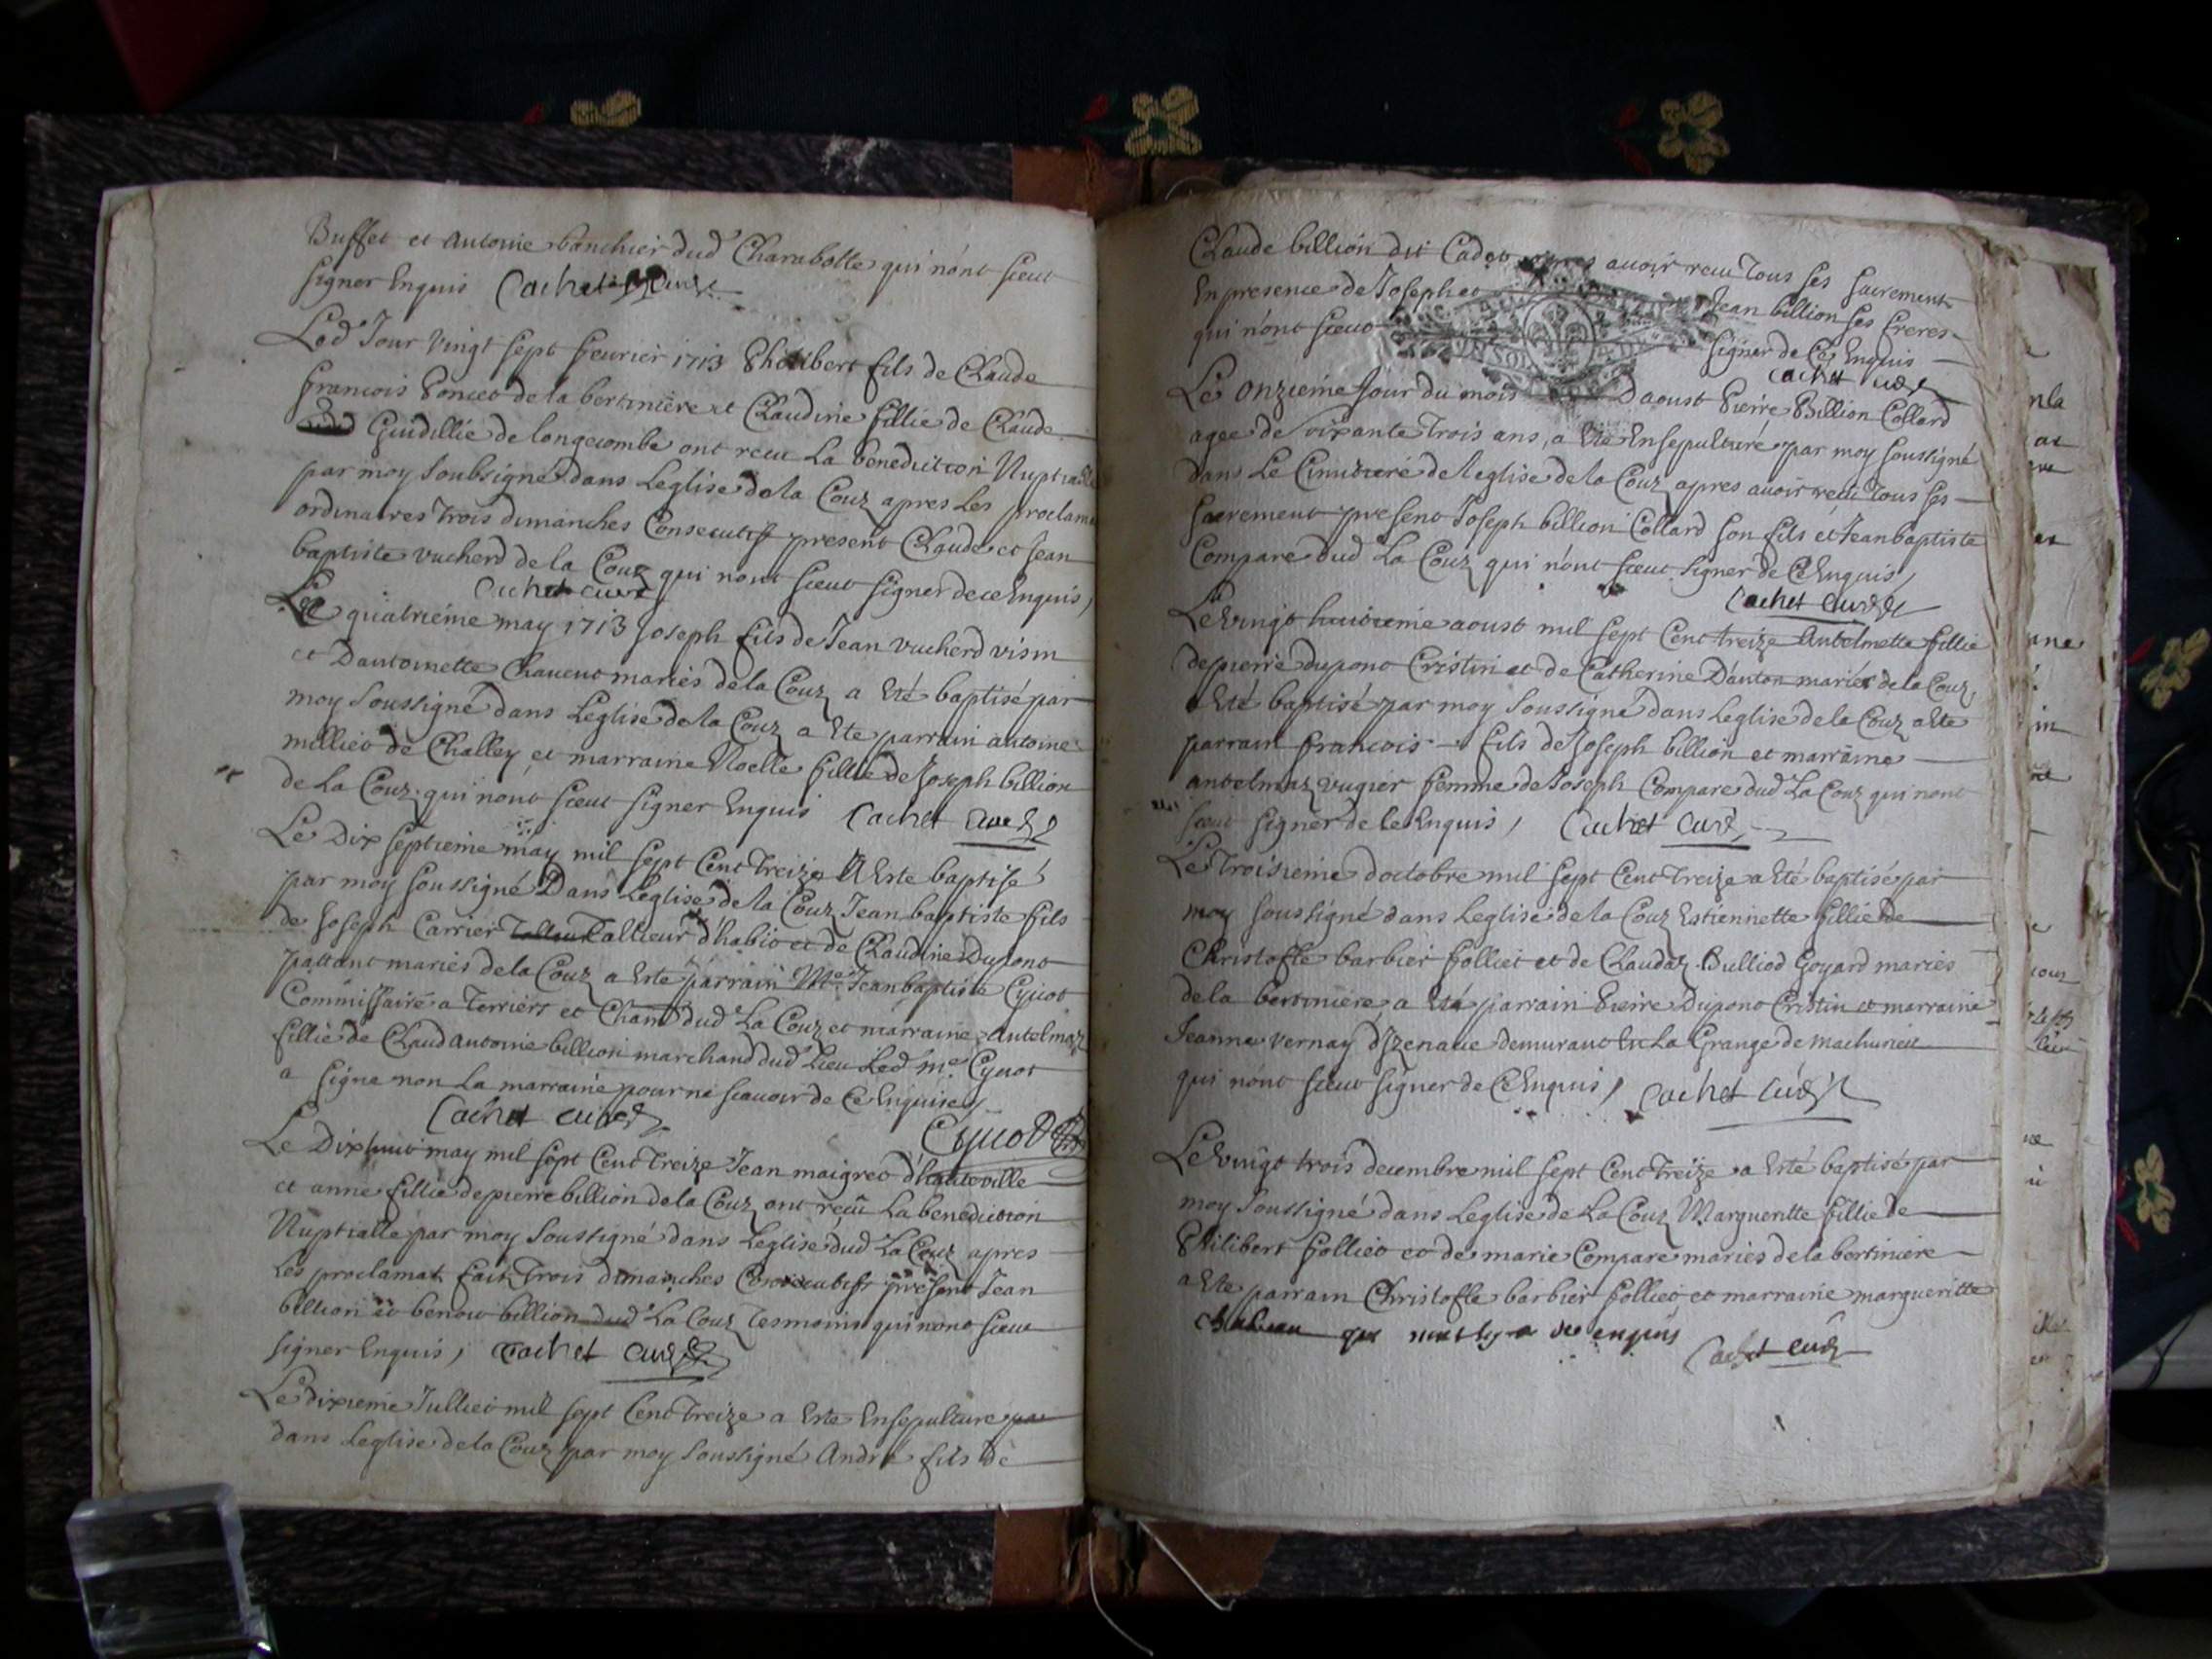 Buffet et Antoine banchier dud Charabotte qui nont sceut
signer Enquis Cachet Curé
Led Jour vingt sept fevrier 1713 Philibert fils de Claude
francois Poncet de la bertiniere et Claudine fillie de Claude
Guidillie de longecombe ont receu La benediction Nuptialle
par moy Soubsigné dans Leglise de la Couz apres Les proclamat
ordinaires Trois dimanches Consecutifs present Claude et Jean
baptiste vucherd de la Couz qui nont sceut signer de ce Enquis,
Cachet curé
Le quatrieme may 1713 Joseph fils de Jean vucherd visin
et Dantoinette Chavent mariés de la Couz a Eté baptisé par
moy Soussigné dans Leglise de la Couz a Ete parrain antoine
milliet de Challey et marraine Noelle fillie de Joseph billion
de La Couz qui nont sceut signer Enquis Cachet Curé
Le Dix septieme may mil sept Cent Treize A Este baptisé
par moy soussigné Dans Leglise de la Couz Jean baptiste fils
de Joseph Carrier Tallieur d'habit et de Claudine Dupont
pattant mariés de la Couz a Este parrain Me Jean baptiste Cyvot
Commissaire a Terriers et Cham dud La Couz et marraine Antelmaz
fillie de Claud Antoine billion marchand dud Lieu Led me Cyvot
a signe non La marraine pour ne scavoir de Ce Enquise,
Cachet curé Cyvot
Le Dixhuit may mil sept Cent Treize Jean maigret d'hauteville
et anne fillie de pierre billion de la Couz ont reçu La benediction
Nuptialle par moy Soussigné dans Leglise dud La Couz apres
Les proclamat fait Trois dimanches Consecutifs present Jean
billion et benoit billion dud La Couz Tesmoins qui nont sceut
signer Enquis, Cachet Curé
Le dixieme Julliet mil sept Cent Treize a Este Ensepulture par
dans Leglise de la Couz par moy Soussigné André fils de
Claude billion dit Cadet apres avoir receu Tous ses sacrement
En presence de Joseph et Jean billion ses freres
qui nont sceut signer de Ce Enquis
Cachet curé
Le Onzieme Jour du mois Daoust Pierre Billion Collard
agee de soixante Trois ans, a Eté Ensepulturé par moy soussigné
dans Le Cimitiere de leglise de la Couz apres avoir receu Tous ses
sacrement present Joseph billion Collard son fils et Jean baptiste
Compare dud La Couz qui nont sceut signer de Ce Enquis,
Cachet Curé
Le vingt huitieme aoust mil sept Cent treize Antelmette fillie
de pierre dupont Cristin et de Catherine Danton mariés de la Couz,
a Eté baptisé par moy Soussigné dans Leglise de la Couz a Ete
parrain francois fils de Joseph billion et marraine
antelmaz vugier femme de Joseph Compare dud La Couz qui nont
sceut signer de Ce Enquis, Cachet Curé
Le Troisieme doctobre mil sept Cent Treize a Eté baptisé par
moy soussigné dans Leglise de la Couz Estiennette fillie de
Christofle barbier folliet et de Claudaz Bulliod Goyard mariés
de la bertiniere, a Eté parrain Pierre Dupont Cristin et marraine
Jeanne vernay d'Izenave demurant En La Grange de machurieu
qui nont sceut signer de Ce Enquis, Cachet Curé
Le vingt trois decembre mil sept Cent Treize a Eté baptisé par
moy Soussigné dans Leglise de La Couz Margueritte fillie de
Philibert folliet et de marie Compare mariés de la bertiniere
a Ete parrain Christofle barbier folliet et marraine margueritte
qui enquis Cachet curé